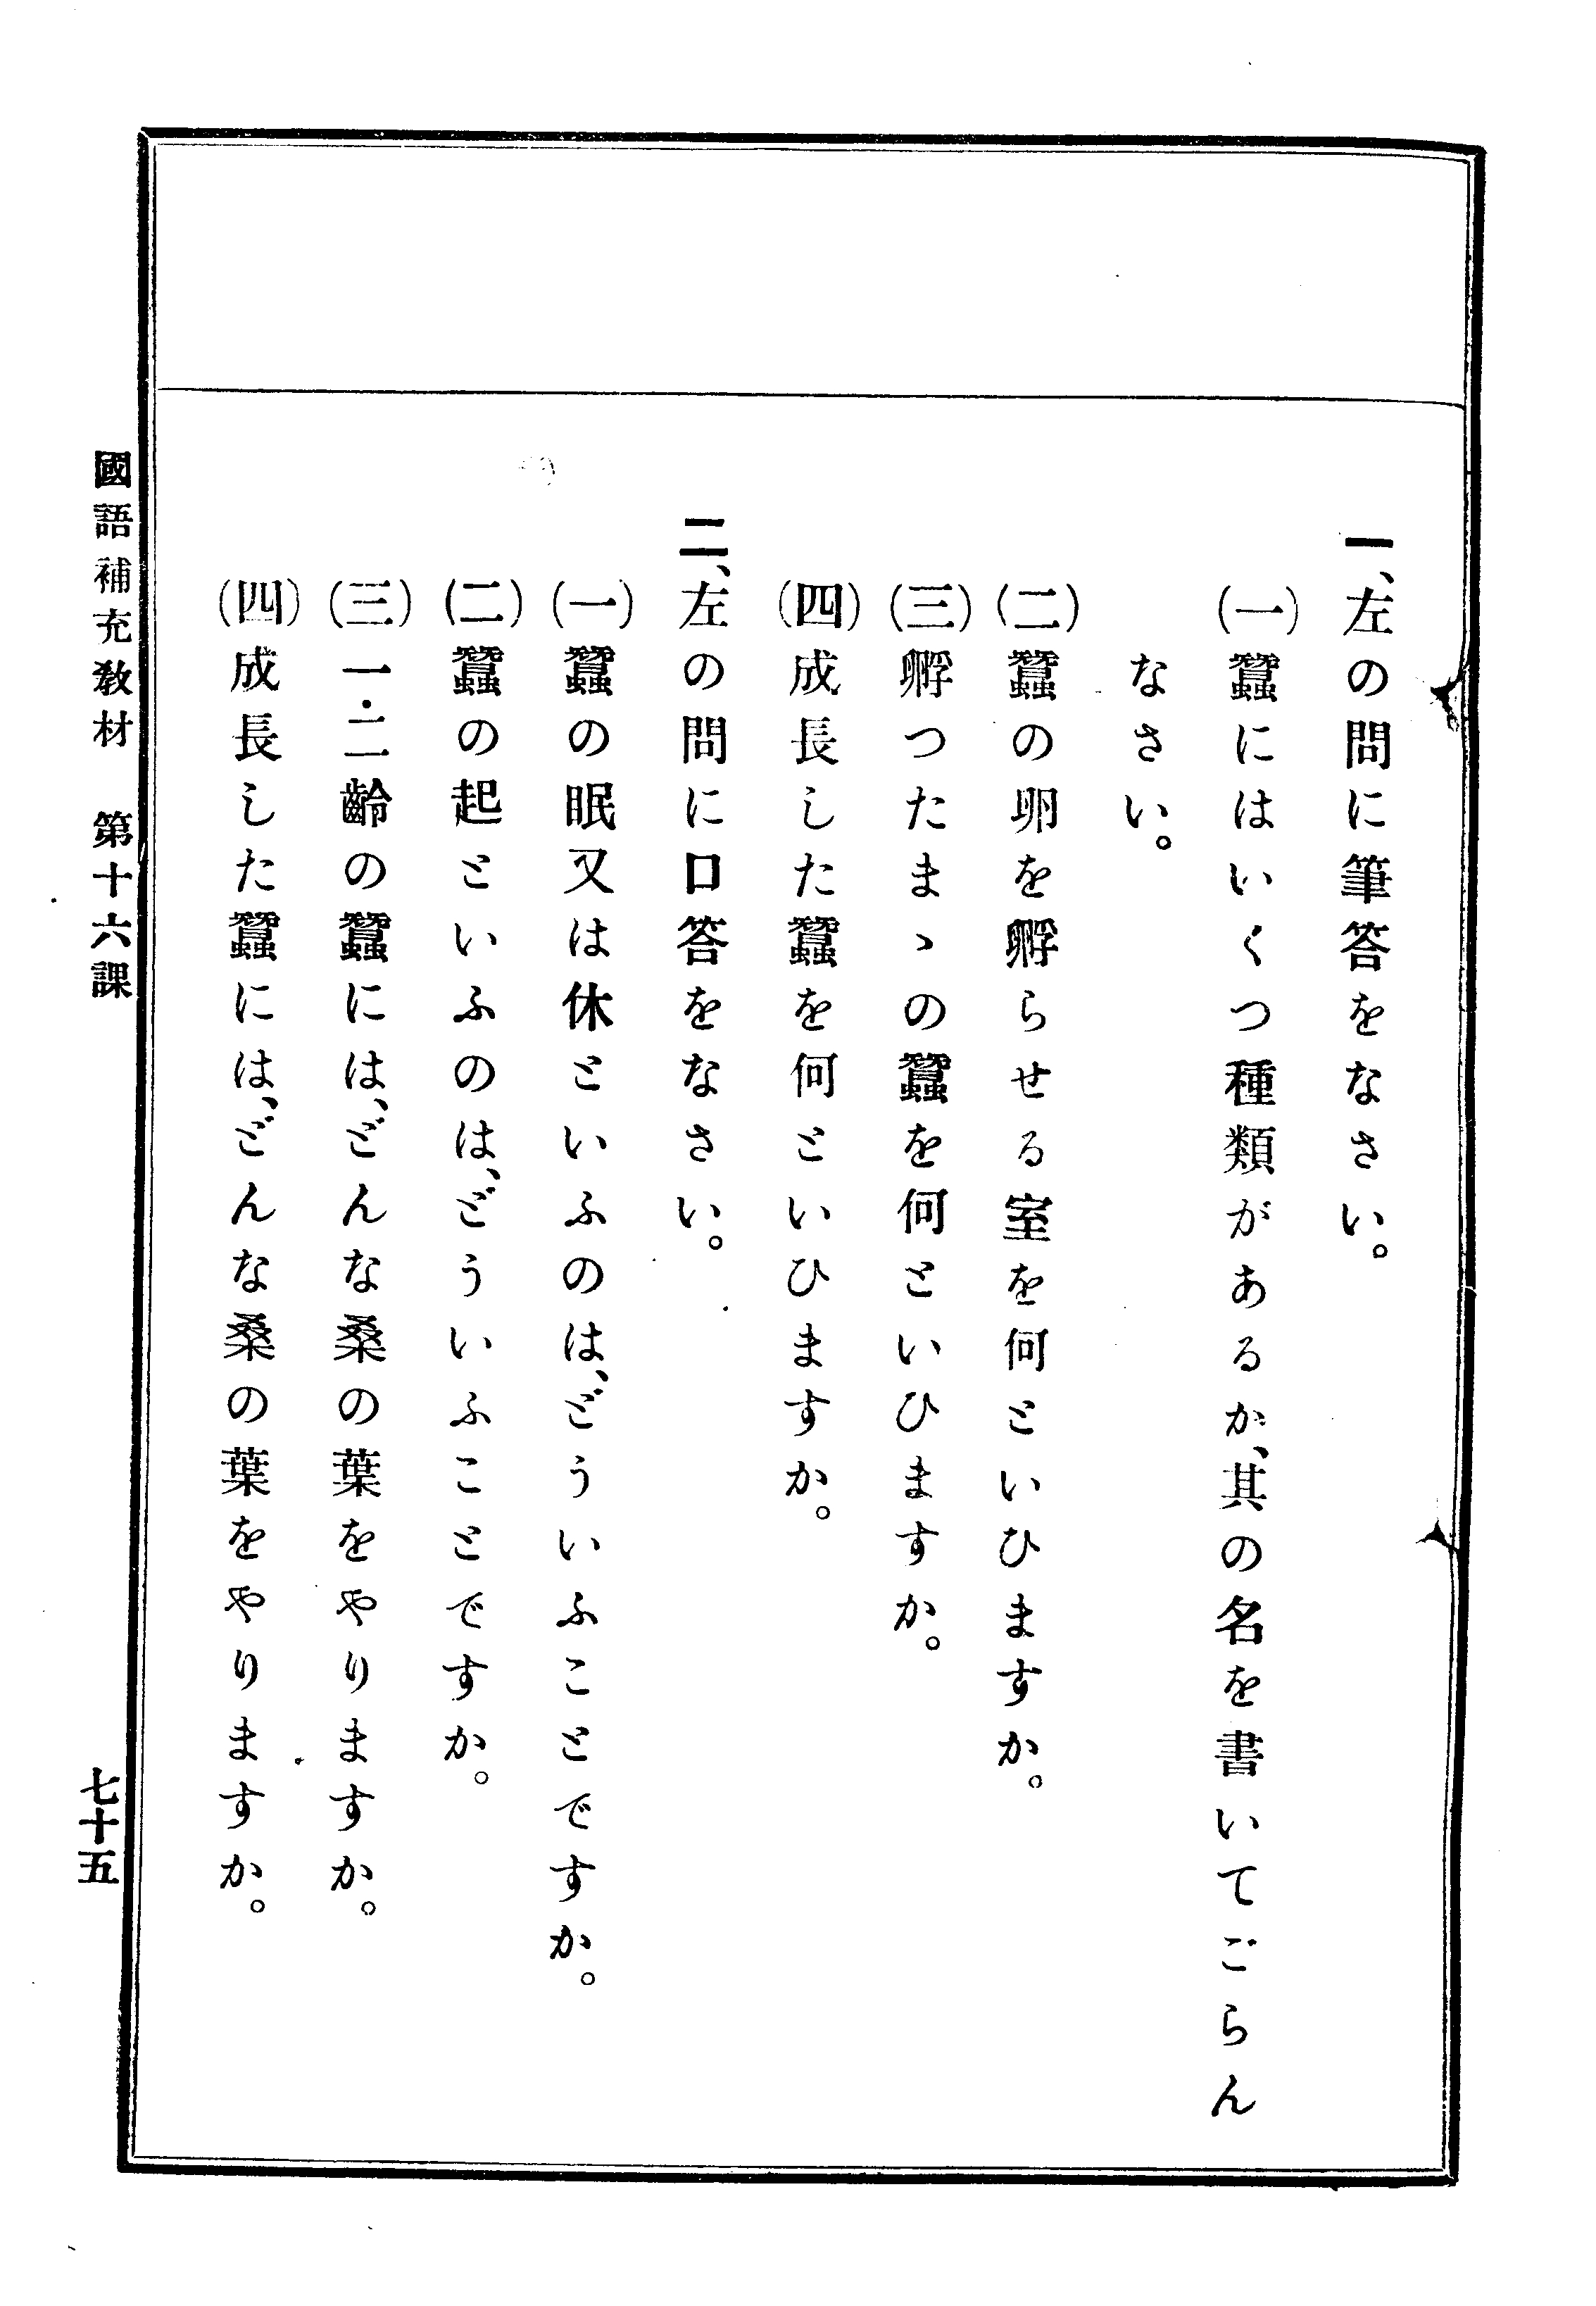 一、左の問に筆答をなさい。
(一)蠶にはいくつ種類があるか、其の名を書いてごらん
なさい。
(二)蠶の卵を孵らせる室を何といひますか。
(三)孵つたまゝの蠶を何といひますか。
(四)成長した蠶を何といひますか。
二、左の問に口答をなさい。
(一)蠶の眠又は休といふのは、どういふことですか。
(二)蠶の起といふのは、どういふことですか。
(三)一・二齡の蠶には、どんな桑の葉をやりますか。
(四)成長した蠶には、どんな桑の葉をやりますか。
國語補充教材　第十六課
七十五